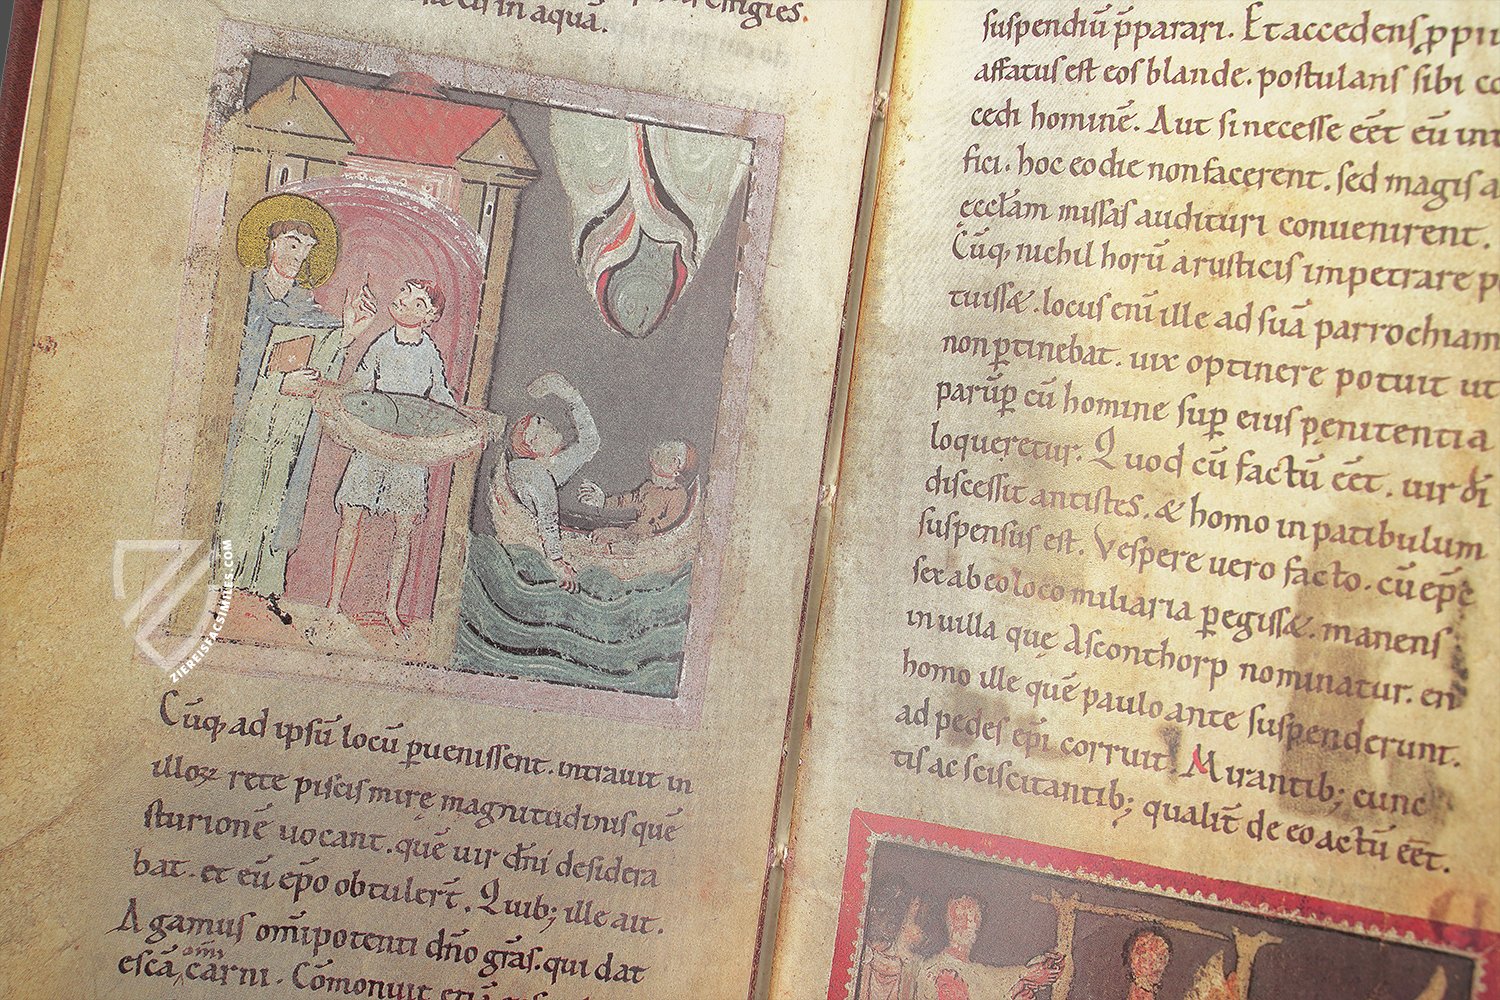 in aquā.
effigies.
Cūq; ad ipsū locū puenissent. intrauit in
illoꝝ rete piscis mirę magnitudinis quē
sturionē uocant. quē uir dn̄i desidera
bat. et eū ep̄o obtulert̄. Quib; ille ait.
Agamus om̄ipotenti dn̄o gr̄as. qui dat
omī
escā carni. Cōmonuit etiā
suspendiū p̄parari. Et accedens ꝓpiu
affatus est eos blande. postulans sibi co
cedi hominē. Aut si necesse eēt eū int
fici. hoc eo die non facerent. sed magis a
ęccłam missas audituri conuenirent.
Cūq; nichil horū a rusticis impetrare p
tuissæ. locus enī ille ad suā parrochiam
non ꝑtinebat. uix optinere potuit ut
parūꝑ cū homine suꝑ eius pęnitentia
loqueretur. Quod cū factū eēt. uir dī
discessit antistes. & homo in patibulum
suspensus est. Vespere uero facto. cū ep̄c
sex ab eo loco miliaria ꝑegissæ. manens
in uilla que Asconthorp nominatur. en
homo ille quē paulo ante suspenderunt.
ad pedes ep̄i corruit. Mirantib; cunc
tis ac sciscitantib; qualit̄ de eo actū eēt.
ZIEREISFACSIMILES.COM